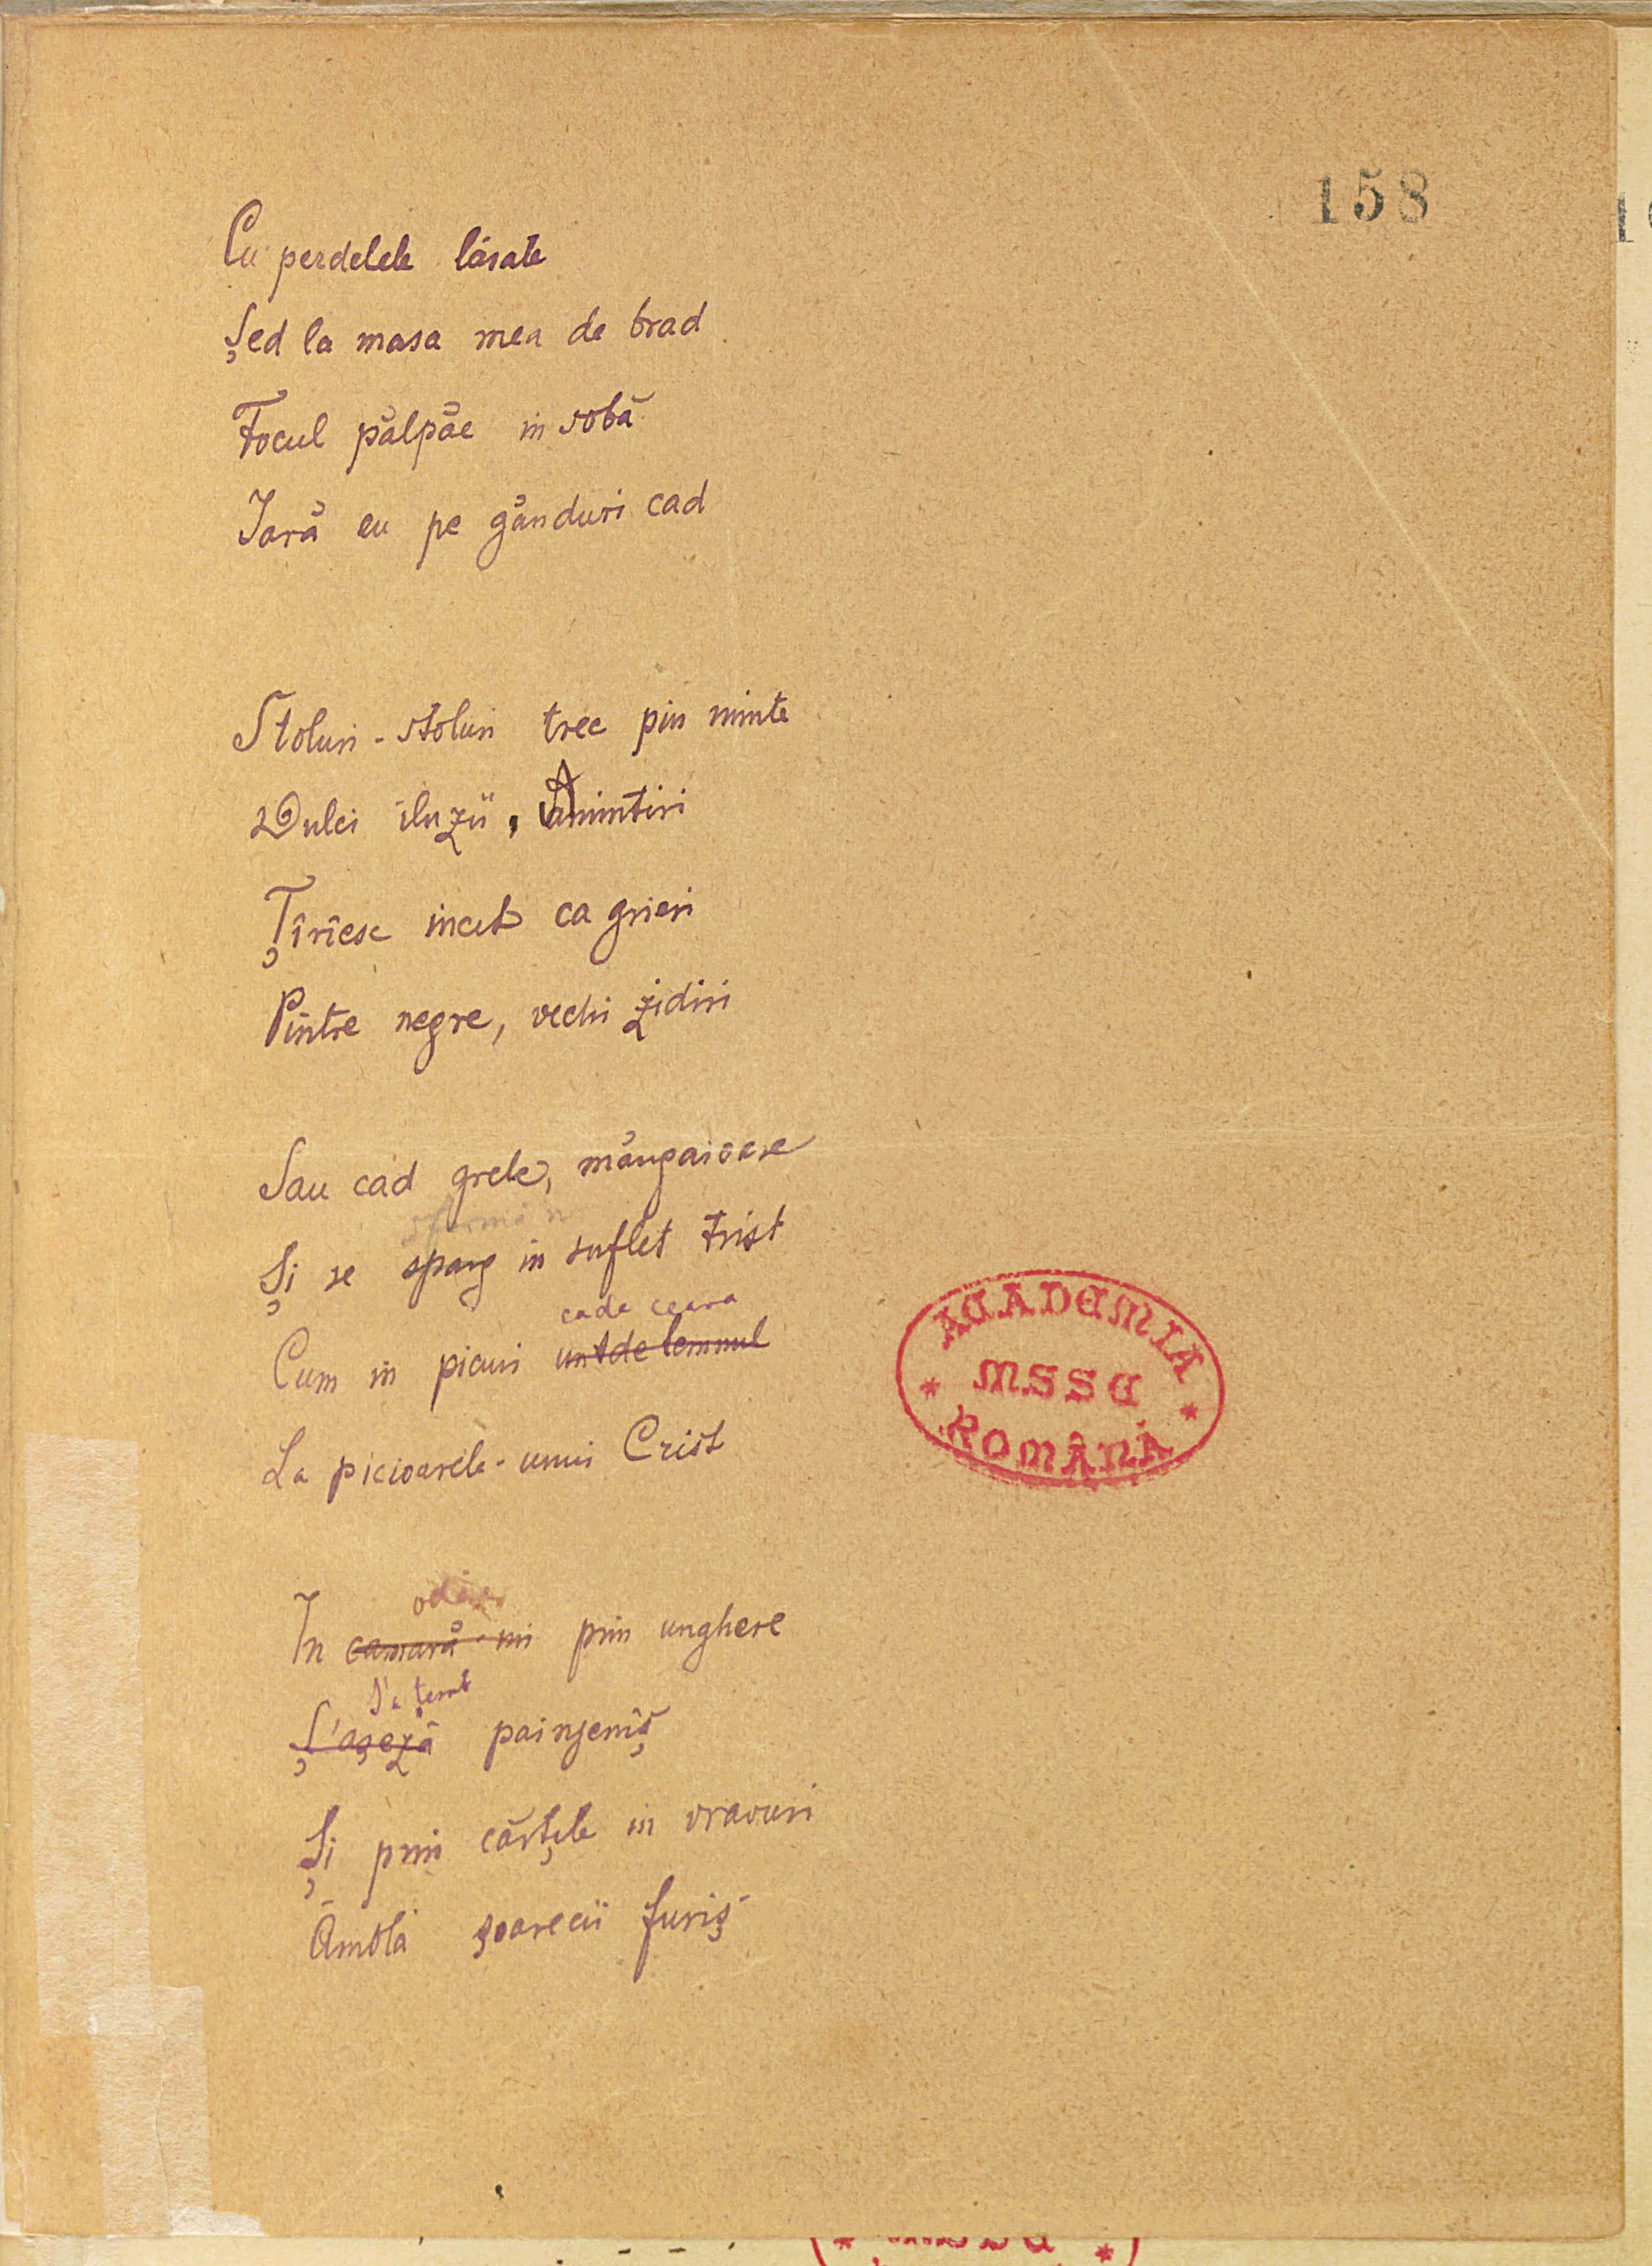 158
Cu perdelele lăsate
Șed la masa mea de brad
Focul pălpăe in sobă
Iară eu pe gănduri cad
Stoluri-stoluri trec pin minte
Dulci iluzii, Amintiri
Țîrîesc incet ca grieri
Pintre negre, vechi zidiri
Sau cad grele, măngaioase
sfarmă n
Și se sparg in suflet trist
cade ceara
Cum in picuri untdelemnul
La picioarele unui Crist
odăea
In camară-mi prin unghere
S'a țesut
S'așeză painjeniș
Și prin cărțele in vravuri
Âmblă șoarecii furiș
ACADEMIA
MSSE
ROMÂNĂ